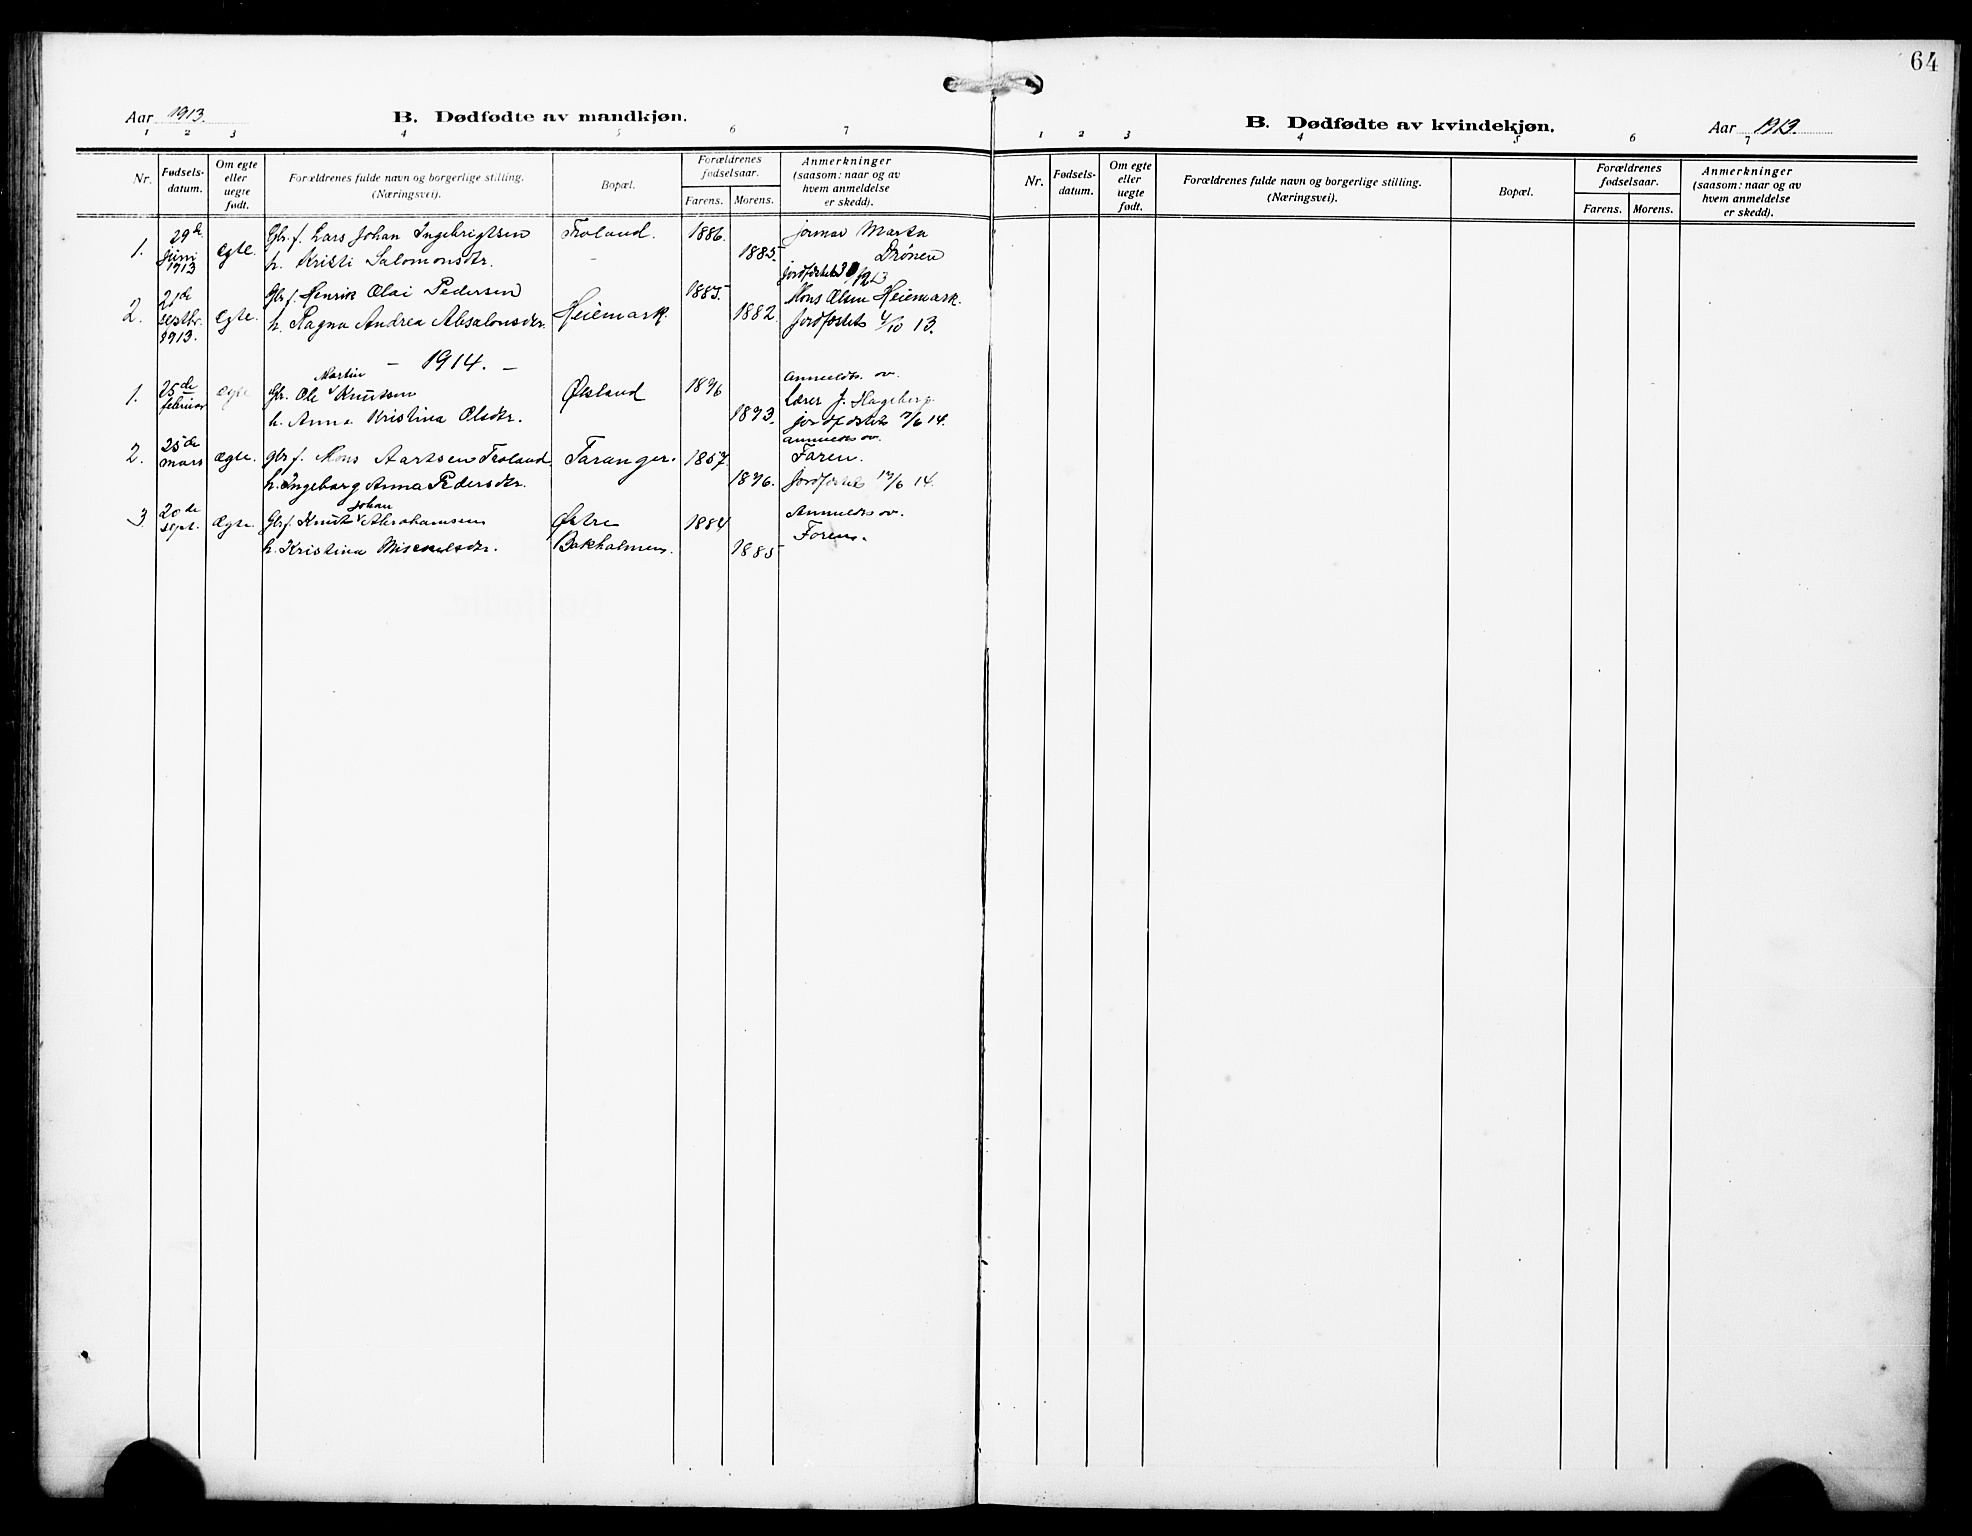 64
Aar 1913.
B. Dødfødte av mandkjøn.
1 2 3 4 5 6 7
Nr.
Fødsels-
datum.
Om egte
eller
uegte
født.
Forældrenes fulde navn og borgerlige stilling.
(Næringsvei).
Bopæl.
Forældrenes
fødselsaar.
Farens. Morens.
Anmerkninger
(saasom: naar og av
hvem anmeldelse
er skedd).
1. 29de juni 1913 egte. Gbr. f. Lars Johan Ingebrigtsen Troland. 1886. jormor Marta
h. Kristi Salomonsdtr. 1885. Drönen
jordfæstet
2. 21de septbr. 1913. egte. Gbr. f. Henrik Olai Pedersen Heiemark. 1885. Mons Olsen Heiemark.
h. Ragna Andrea Absalonsdtr. 1882. Jordfæstet 4/10 13.
– 1914. –
1. 25de februar ægte Gbr. Ole Martin Knutsen Økland 1876 anmeldt av
lærer J. Hageberg
h. Anna Kristina Olsdtr. 1873. jordfæstet 7/6 14.
2. 25de mars ægte. gbr f. Mons Aartsen Troland Taranger. 1857. anmeldt av
Faren.
h. Ingeborg Anna Pedersdtr. 1876. Jordfæstet 14.
3 20de sept. ægte. Gbr f. Knut Johan Abrahamsen Østre 1884 Anmeldt av
h. Kristina Mikkelsdtr. Bakholmen. 1885 Faren.
B. Dødfødte av kvindekjøn.
Aar 1913.
1 2 3 4 5 6 7
Nr.
Fødsels-
datum.
Om egte
eller
uegte
født.
Forældrenes fulde navn og borgerlige stilling.
(Næringsvei).
Bopæl.
Forældrenes
fødselsaar.
Farens. Morens.
Anmerkninger
(saasom: naar og av
hvem anmeldelse
er skedd).